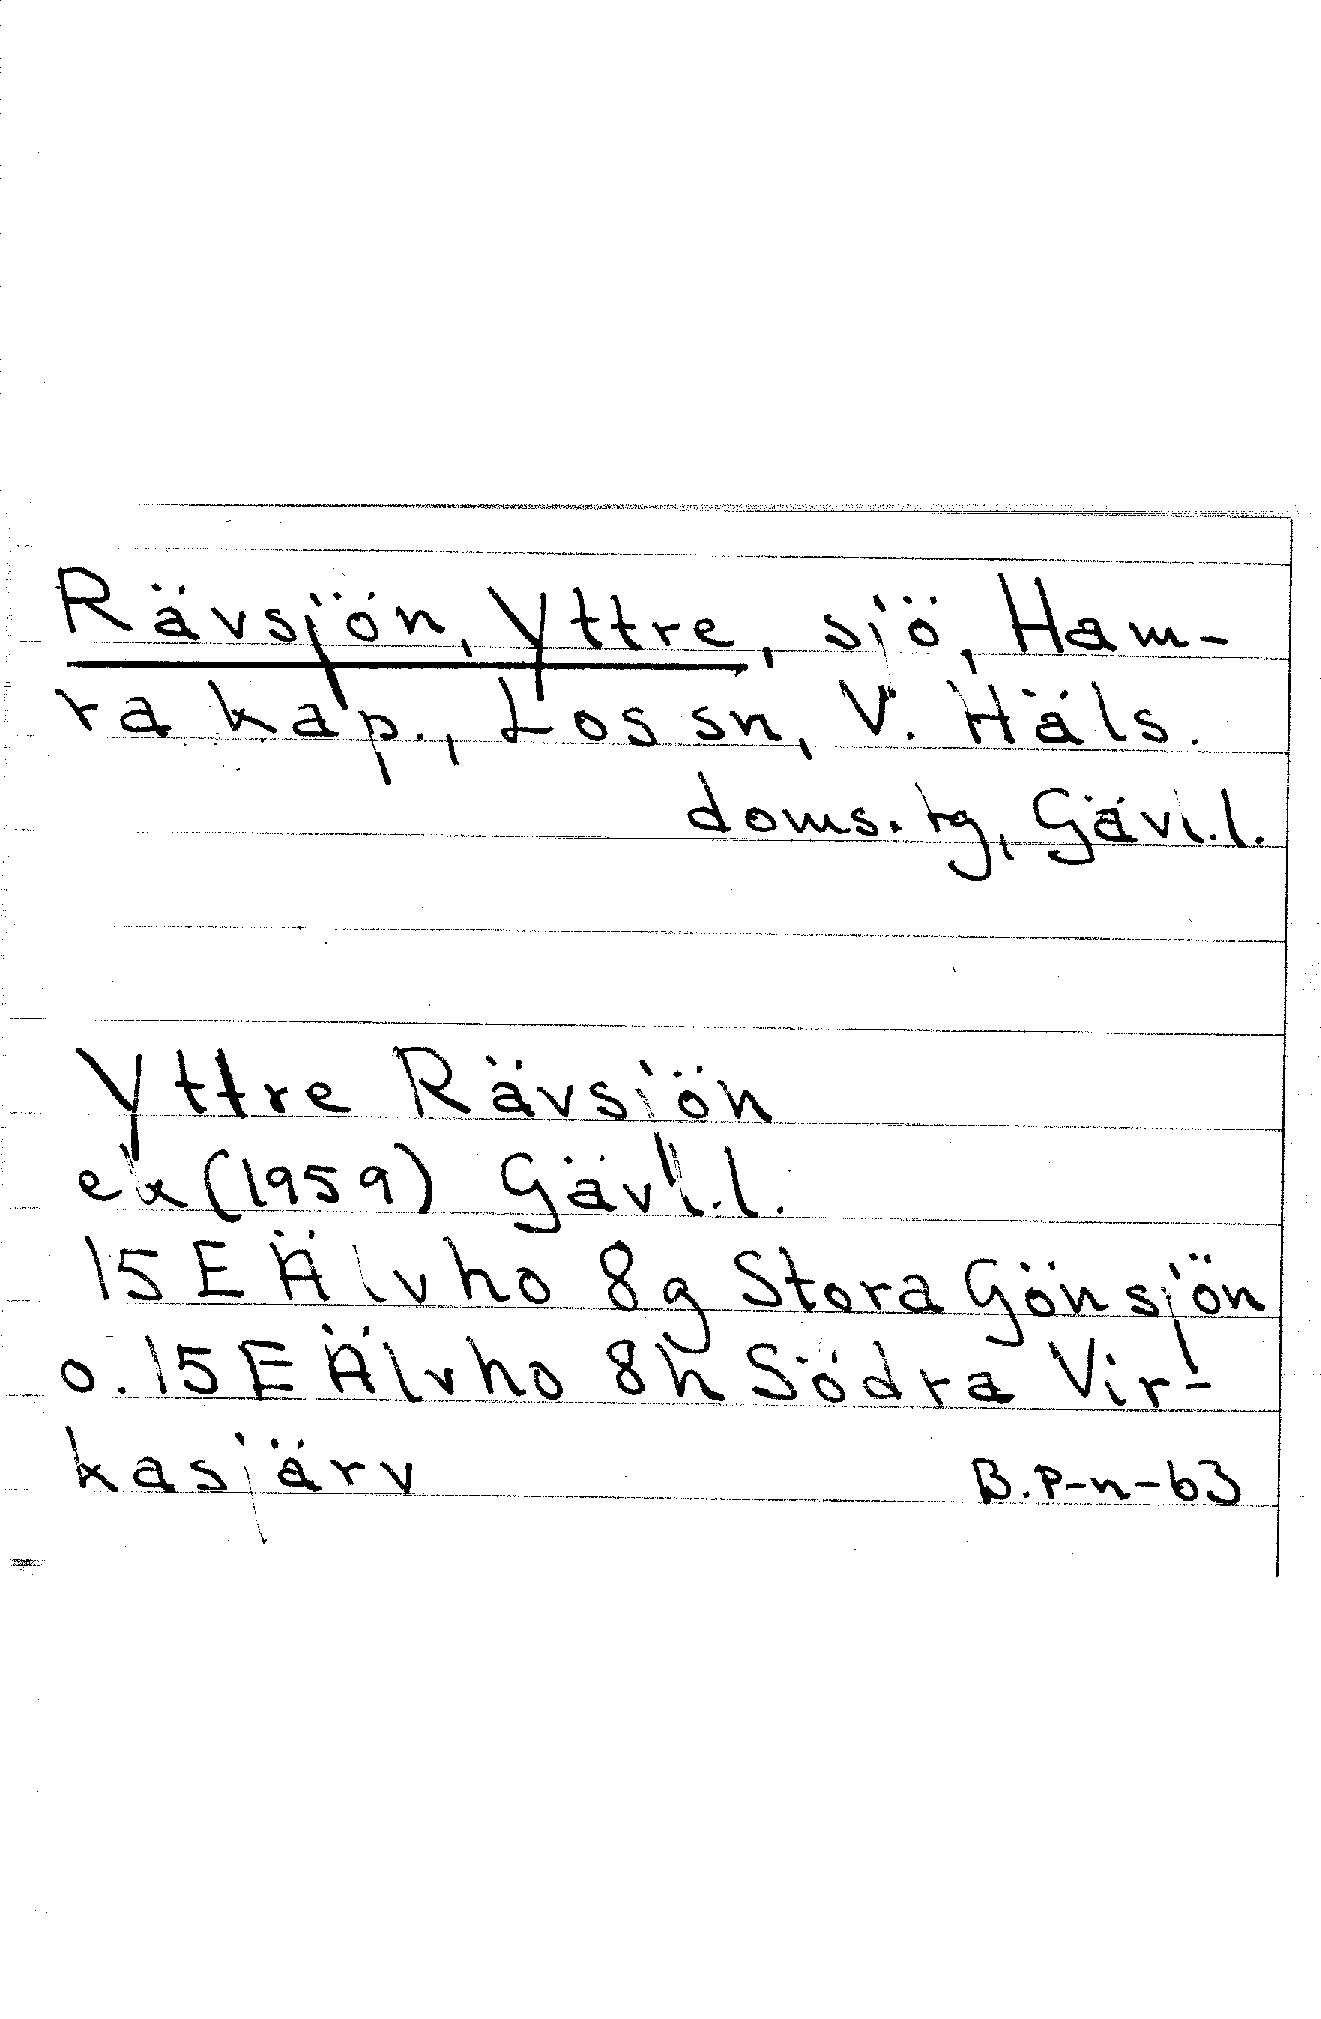 Rävsjön, Yttre, sjö, Ham-
ra kap., Los sn, V. Häls.
doms. tg, Gävl.l.
Yttre Rävsjön
ek (1959) Gävl.l.
15 E Älvho 8g Stora Gönsjön
o. 15 E Älvho 8h Södra Vir-
kasjärv
B. P-n-63